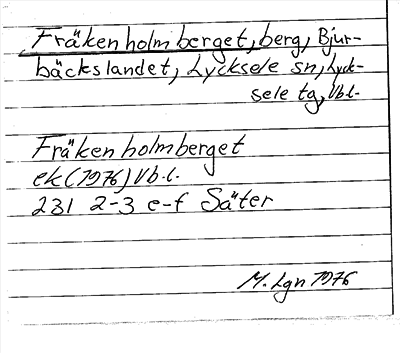 Fräkenholmberget, berg, Bjur-
bäckslandet, Lycksele sn, Lyck-
sele tg, Vb.l.
Fräkenholmberget
ek (1976) Vb.l.
231 2-3 e-f Säter
M. Lgn 1976